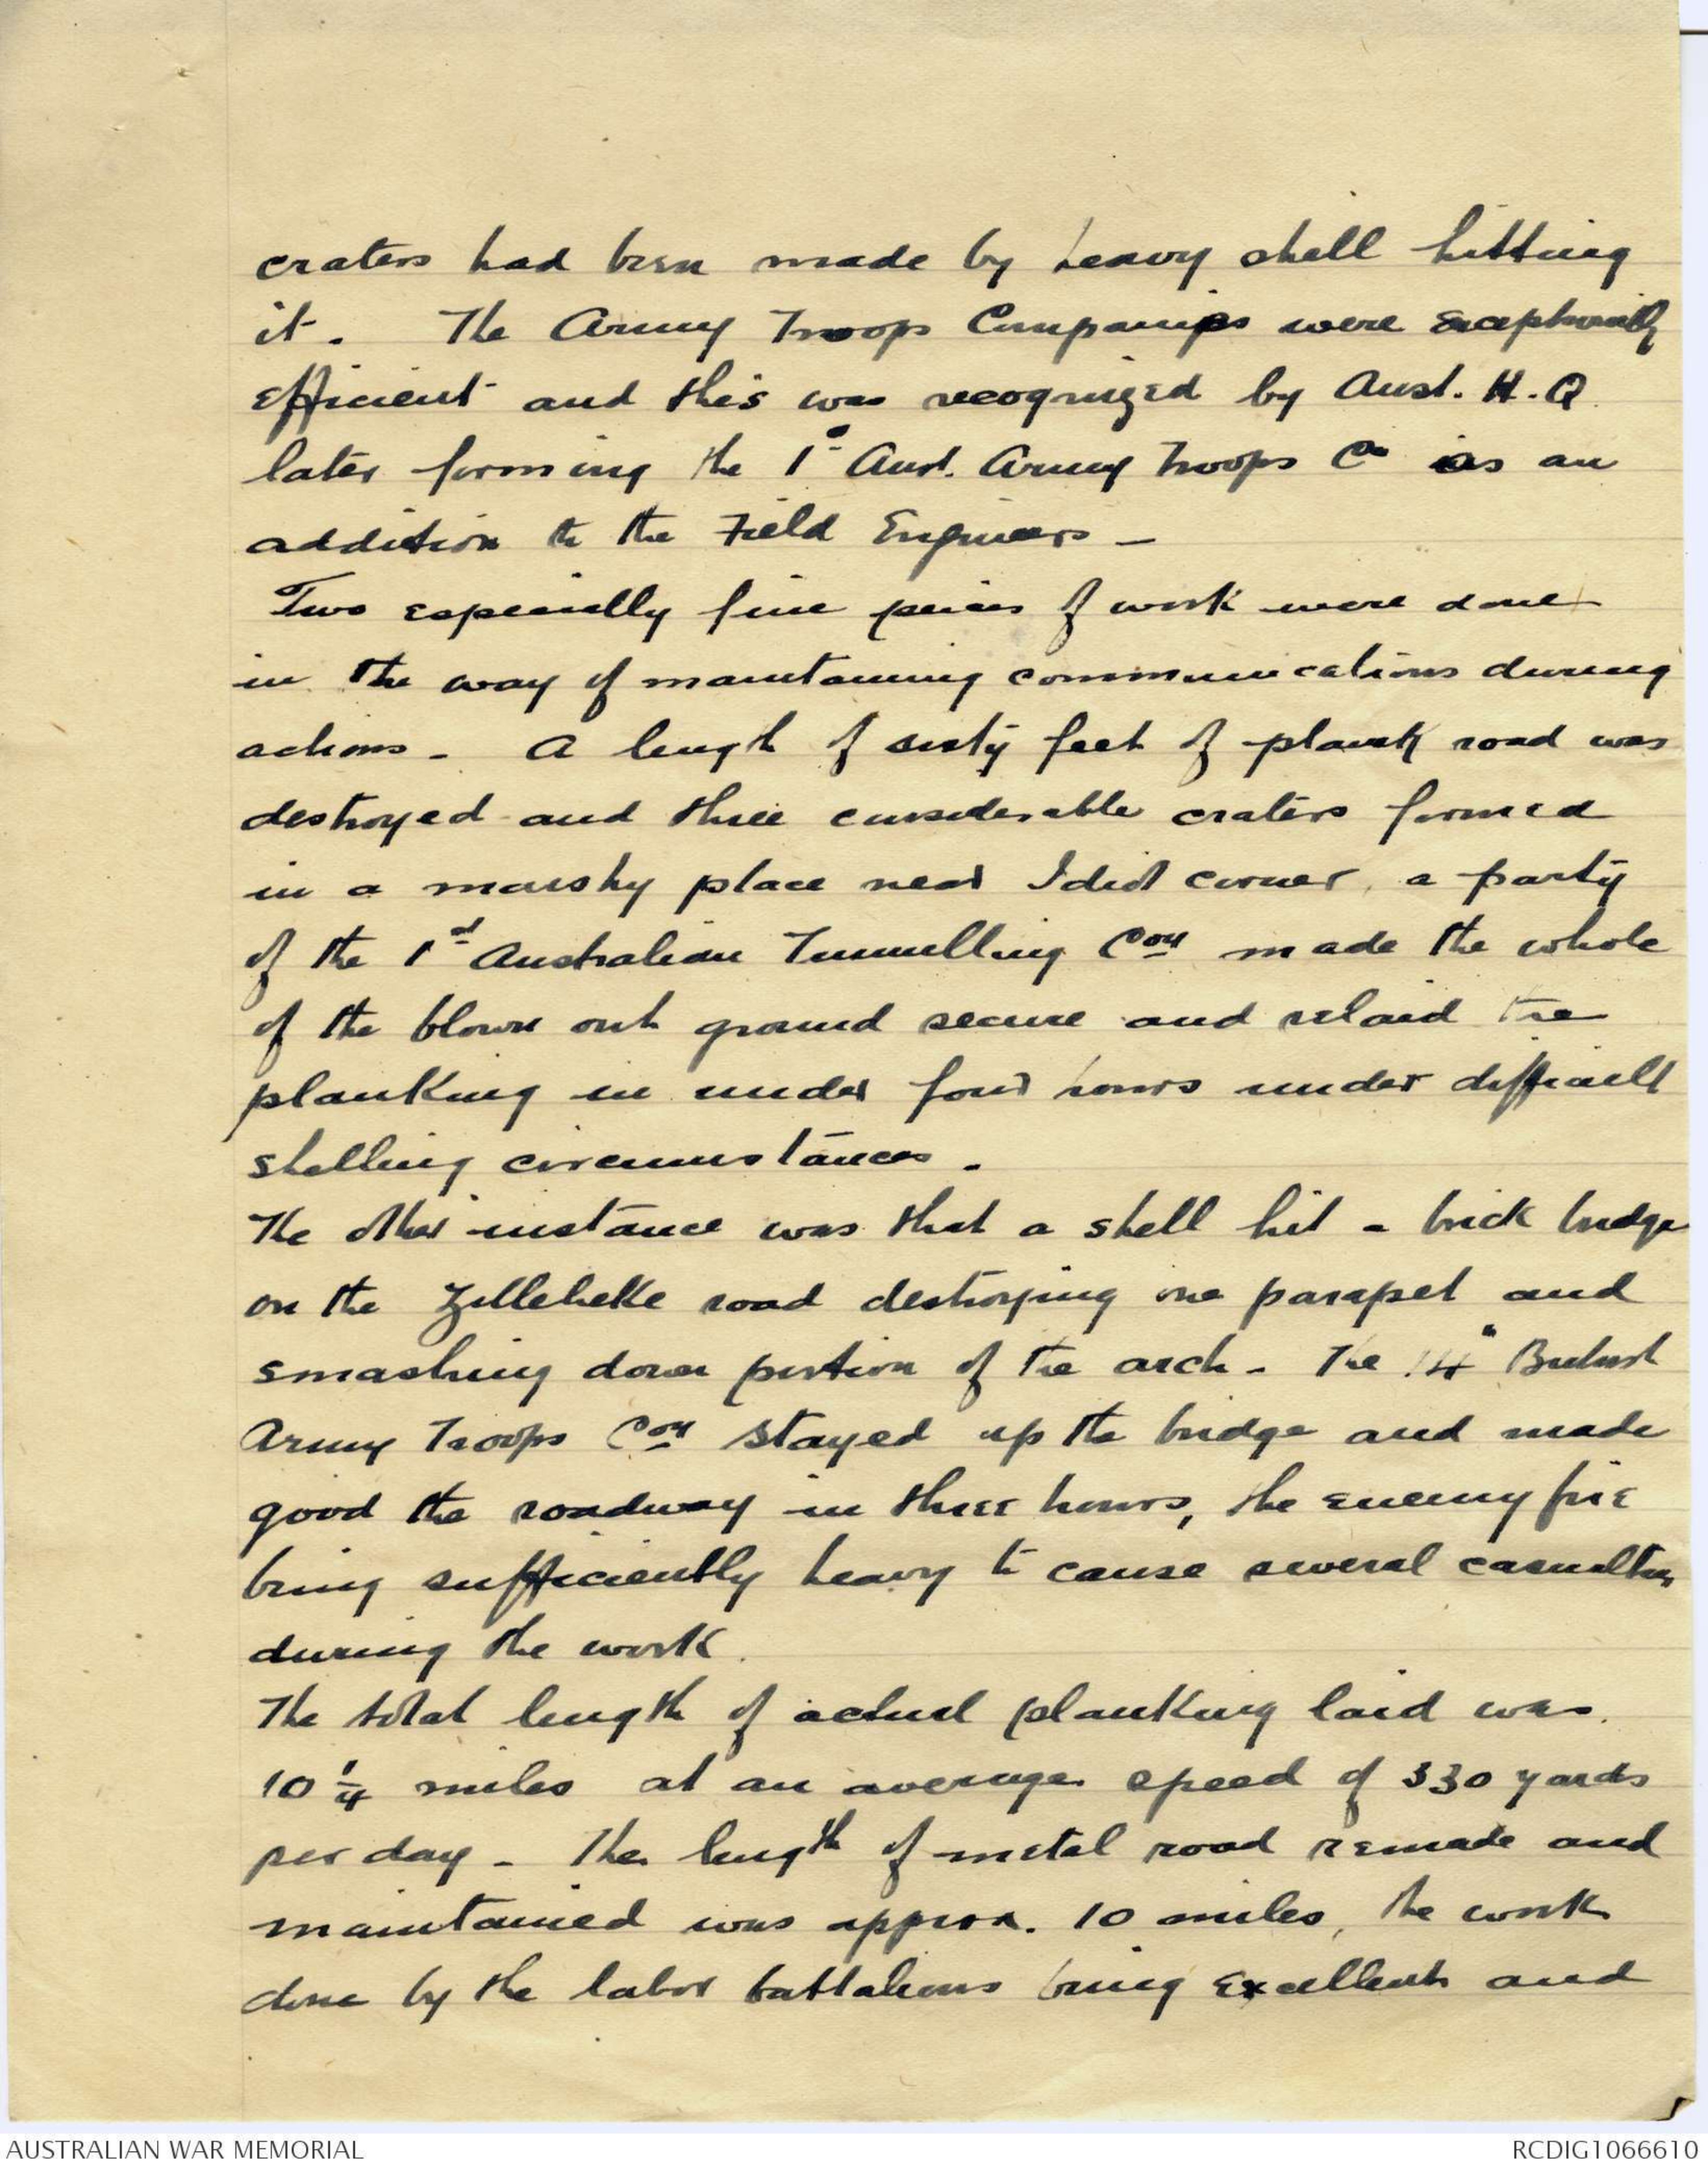 craters had been made by heavy shell hitting
it. The Army Troops Companies were exceptionally
efficient and this was recognized by Aust. H.Q.
later forming the 1st Aust. Army Troops Co as an
addition to the Field Engineers -
Two especially fine peices of work were done
in the way of maintaining communications during
actions - A length of sixty feet of plank road was
destroyed and three considerable craters formed
in a marshy place near Idiot corner, a party
of the 1st Australian Tunnelling Coy made the whole
of the blown out ground secure and relaid the
planking in under four hours under difficult
shelling circumstances.
The other instance was that a shell hit a brick bridge
on the Zillebeke road destroying one parapet and
smashing down portion of the arch - The 14" British
Army Troops Coy stayed up the bridge and made
good the roadway in three hours, the enemy fire
being sufficiently heavy to cause several casualties
during the work.
The total length of actual planking laid was.
10 1/4 miles at an average speed of 330 yards
per day - The length of metal road remade and
maintained was approx. 10 miles, the work
done by the labor battalions being excellent and
AUSTRALIAN WAR MEMORIAL
RCDIG1066610